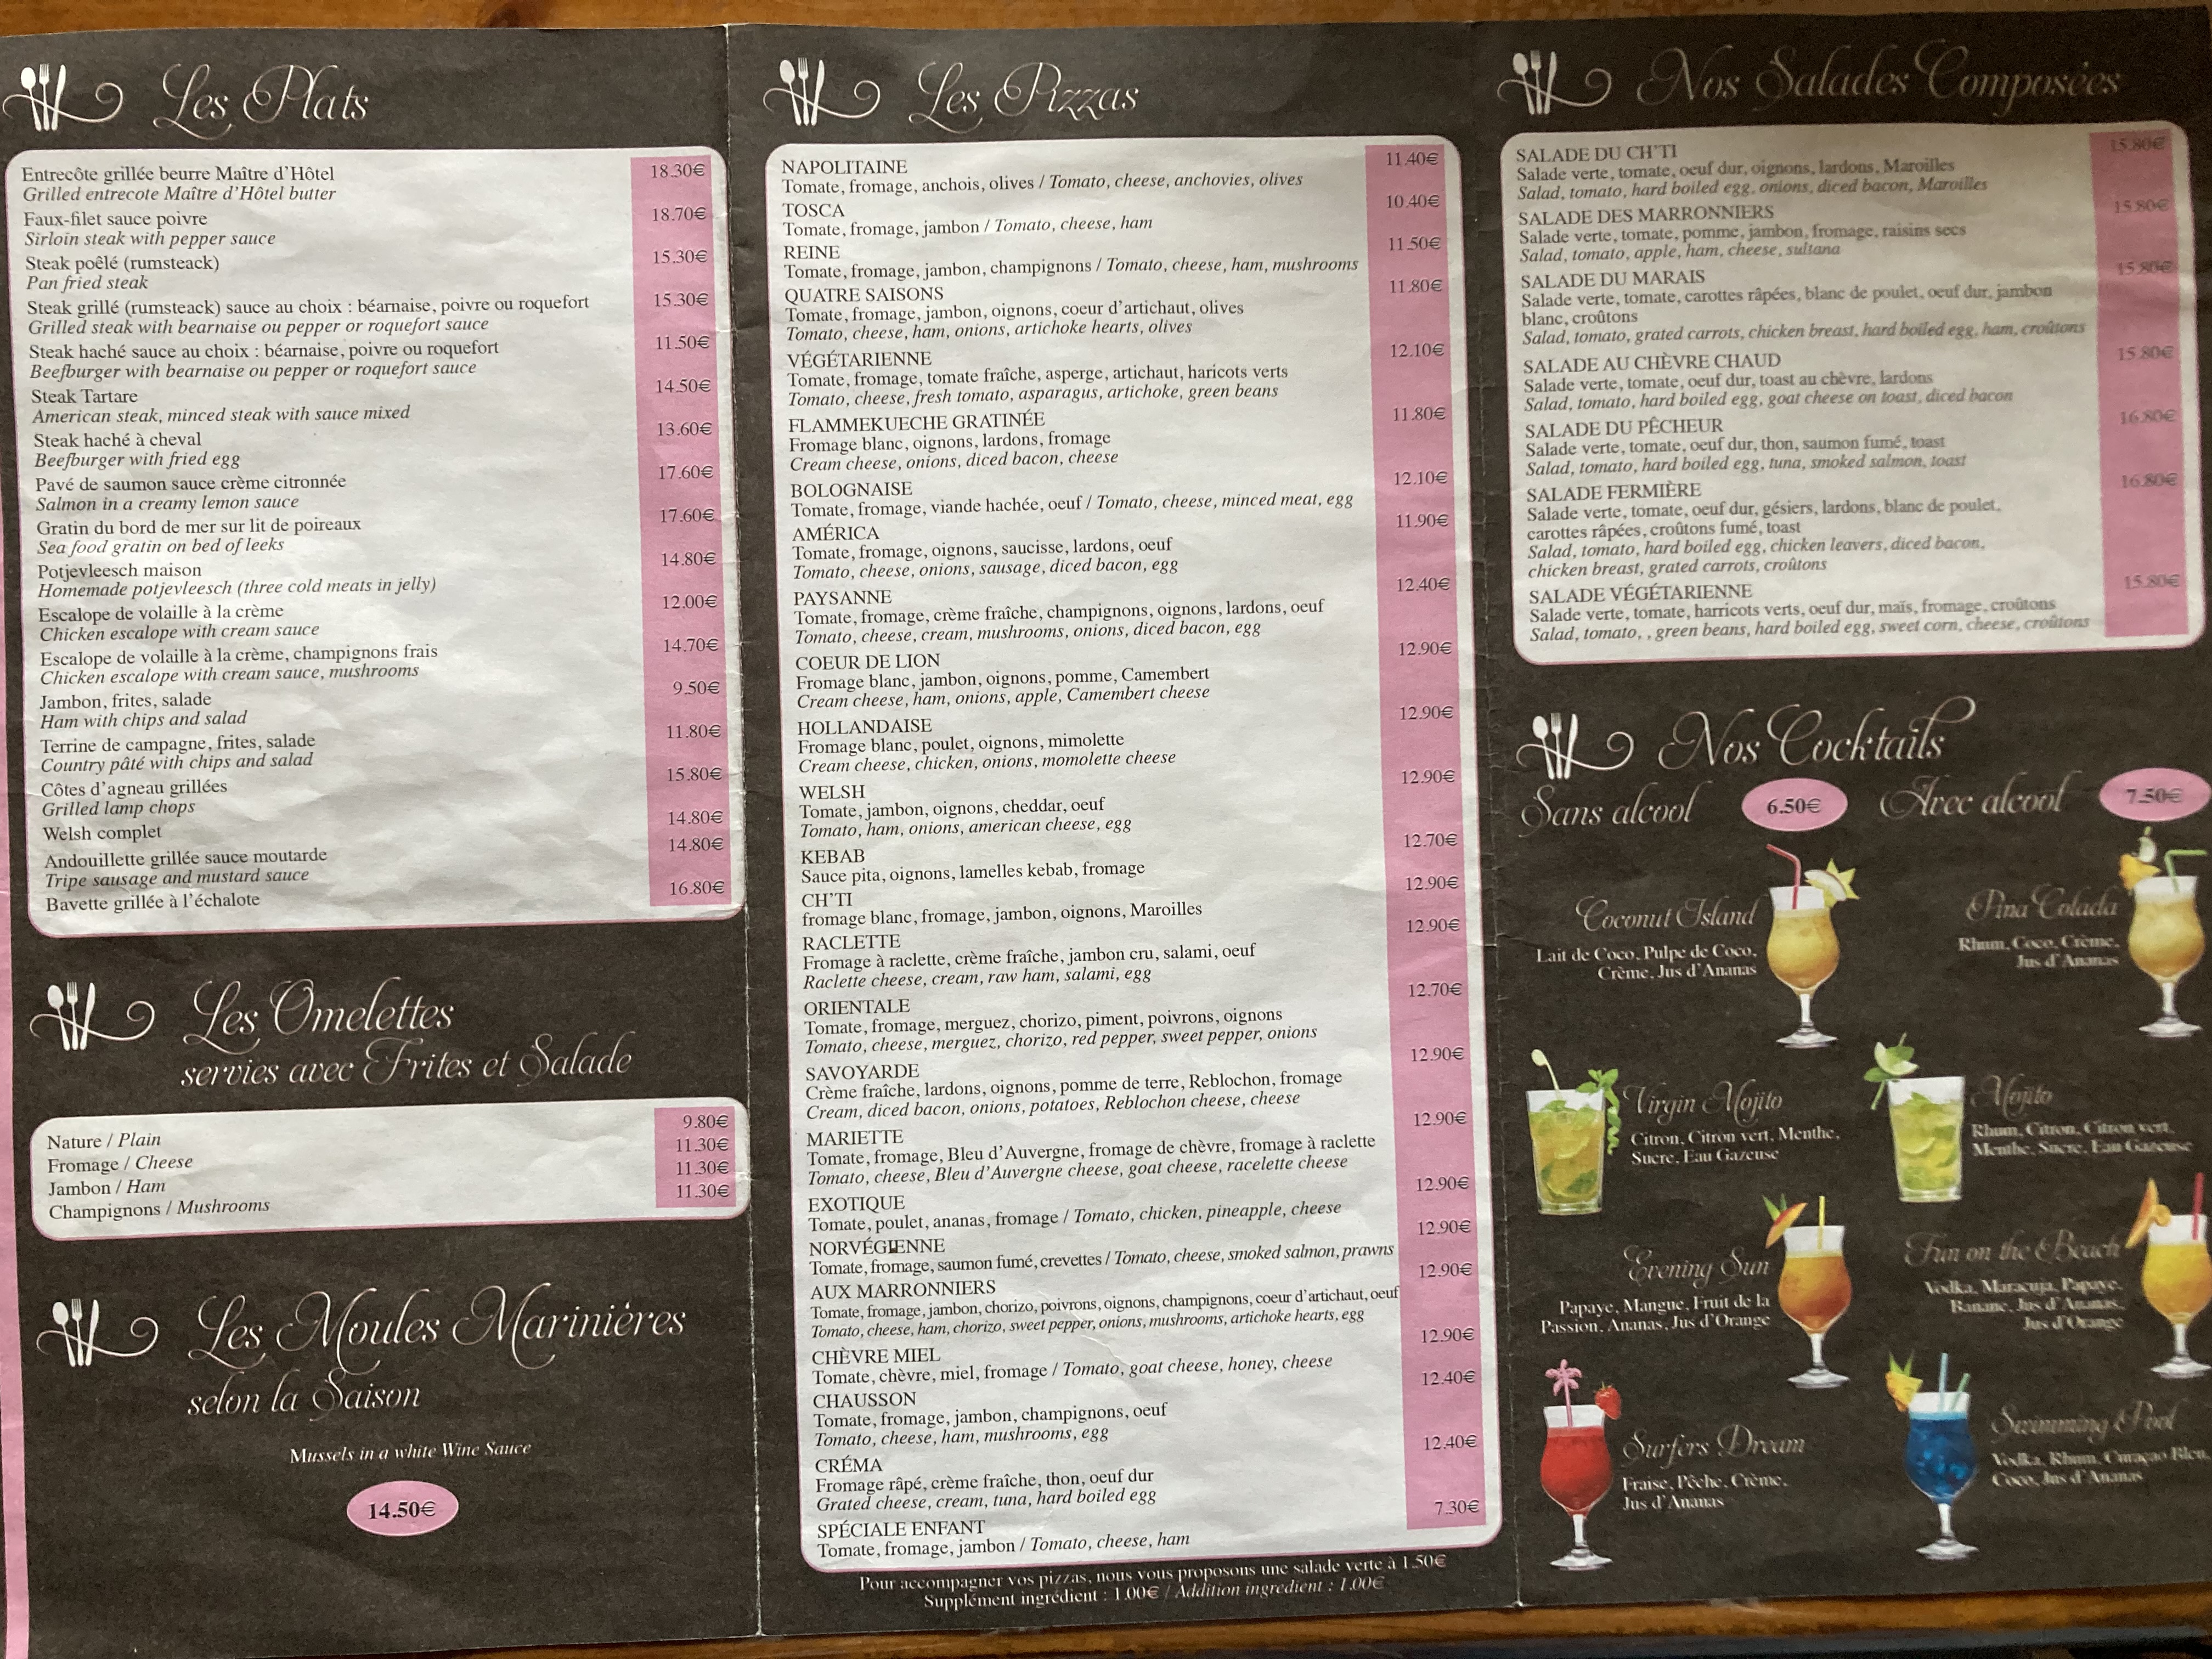 Les Plats
Entrecôte grillée beurre Maître d'Hôtel 18.30€
Grilled entrecote Maître d'Hôtel butter
Faux-filet sauce poivre 18.70€
Sirloin steak with pepper sauce
Steak poêlé (rumsteack) 15.30€
Pan fried steak
Steak grillé (rumsteack) sauce au choix : béarnaise, poivre ou roquefort 15.30€
Grilled steak with bearnaise ou pepper or roquefort sauce
Steak haché sauce au choix : béarnaise, poivre ou roquefort 11.50€
Beefburger with bearnaise ou pepper or roquefort sauce
Steak Tartare 14.50€
American steak, minced steak with sauce mixed
Steak haché à cheval 13.60€
Beefburger with fried egg
Pavé de saumon sauce crème citronnée 17.60€
Salmon in a creamy lemon sauce
Gratin du bord de mer sur lit de poireaux 17.60€
Sea food gratin on bed of leeks
Potjevleesch maison 14.80€
Homemade potjevleesch (three cold meats in jelly)
Escalope de volaille à la crème 12.00€
Chicken escalope with cream sauce
Escalope de volaille à la crème, champignons frais 14.70€
Chicken escalope with cream sauce, mushrooms
Jambon, frites, salade 9.50€
Ham with chips and salad
Terrine de campagne, frites, salade 11.80€
Country pâté with chips and salad
Côtes d'agneau grillées 15.80€
Grilled lamp chops
Welsh complet 14.80€
Andouillette grillée sauce moutarde 14.80€
Tripe sausage and mustard sauce
Bavette grillée à l'échalote 16.80€
Les Omelettes
servies avec Frites et Salade
Nature / Plain 9.80€
Fromage / Cheese 11.30€
Jambon / Ham 11.30€
Champignons / Mushrooms 11.30€
Les Moules Marinières
selon la Saison
Mussels in a white Wine Sauce
14.50€
Les Pizzas
NAPOLITAINE 11.40€
Tomate, fromage, anchois, olives / Tomato, cheese, anchovies, olives
TOSCA 10.40€
Tomate, fromage, jambon / Tomato, cheese, ham
REINE 11.50€
Tomate, fromage, jambon, champignons / Tomato, cheese, ham, mushrooms
QUATRE SAISONS 11.80€
Tomate, fromage, jambon, oignons, coeur d'artichaut, olives
Tomato, cheese, ham, onions, artichoke hearts, olives
VÉGÉTARIENNE 12.10€
Tomate, fromage, tomate fraîche, asperge, artichaut, haricots verts
Tomato, cheese, fresh tomato, asparagus, artichoke, green beans
FLAMMEKUECHE GRATINÉE 11.80€
Fromage blanc, oignons, lardons, fromage
Cream cheese, onions, diced bacon, cheese
BOLOGNAISE 12.10€
Tomate, fromage, viande hachée, oeuf / Tomato, cheese, minced meat, egg
AMÉRICA 11.90€
Tomate, fromage, oignons, saucisse, lardons, oeuf
Tomato, cheese, onions, sausage, diced bacon, egg
PAYSANNE 12.40€
Tomate, fromage, crème fraîche, champignons, oignons, lardons, oeuf
Tomato, cheese, cream, mushrooms, onions, diced bacon, egg
COEUR DE LION 12.90€
Fromage blanc, jambon, oignons, pomme, Camembert
Cream cheese, ham, onions, apple, Camembert cheese
HOLLANDAISE 12.90€
Fromage blanc, poulet, oignons, mimolette
Cream cheese, chicken, onions, momolette cheese
WELSH 12.90€
Tomate, jambon, oignons, cheddar, oeuf
Tomato, ham, onions, american cheese, egg
KEBAB 12.70€
Sauce pita, oignons, lamelles kebab, fromage
CH'TI 12.90€
fromage blanc, fromage, jambon, oignons, Maroilles
RACLETTE 12.90€
Fromage à raclette, crème fraîche, jambon cru, salami, oeuf
Raclette cheese, cream, raw ham, salami, egg
ORIENTALE 12.70€
Tomate, fromage, merguez, chorizo, piment, poivrons, oignons
Tomato, cheese, merguez, chorizo, red pepper, sweet pepper, onions
SAVOYARDE 12.90€
Crème fraîche, lardons, oignons, pomme de terre, Reblochon, fromage
Cream, diced bacon, onions, potatoes, Reblochon cheese, cheese
MARIETTE 12.90€
Tomate, fromage, Bleu d'Auvergne, fromage de chèvre, fromage à raclette
Tomato, cheese, Bleu d'Auvergne cheese, goat cheese, racelette cheese
EXOTIQUE 12.90€
Tomate, poulet, ananas, fromage / Tomato, chicken, pineapple, cheese
NORVÉGIENNE 12.90€
Tomate, fromage, saumon fumé, crevettes / Tomato, cheese, smoked salmon, prawns
AUX MARRONNIERS 12.90€
Tomate, fromage, jambon, chorizo, poivrons, oignons, champignons, coeur d'artichaut, oeuf
Tomato, cheese, ham, chorizo, sweet pepper, onions, mushrooms, artichoke hearts, egg
CHÈVRE MIEL 12.90€
Tomate, chèvre, miel, fromage / Tomato, goat cheese, honey, cheese
CHAUSSON 12.40€
Tomate, fromage, jambon, champignons, oeuf
Tomato, cheese, ham, mushrooms, egg
CRÉMA 12.40€
Fromage râpé, crème fraîche, thon, oeuf dur
Grated cheese, cream, tuna, hard boiled egg
SPÉCIALE ENFANT 7.30€
Tomate, fromage, jambon / Tomato, cheese, ham
Pour accompagner vos pizzas, nous vous proposons une salade verte à 1.50€
Supplément ingrédient : 1.00€ / Addition ingredient : 1.00€
Nos Salades Composées
SALADE DU CH'TI 15.80€
Salade verte, tomate, oeuf dur, oignons, lardons, Maroilles
Salad, tomato, hard boiled egg, onions, diced bacon, Maroilles
SALADE DES MARRONNIERS 15.80€
Salade verte, tomate, pomme, jambon, fromage, raisins secs
Salad, tomato, apple, ham, cheese, sultana
SALADE DU MARAIS 15.80€
Salade verte, tomate, carottes râpées, blanc de poulet, oeuf dur, jambon
blanc, croûtons
Salad, tomato, grated carrots, chicken breast, hard boiled egg, ham, croûtons
SALADE AU CHÈVRE CHAUD 15.80€
Salade verte, tomate, oeuf dur, toast au chèvre, lardons
Salad, tomato, hard boiled egg, goat cheese on toast, diced bacon
SALADE DU PÊCHEUR 16.80€
Salade verte, tomate, oeuf dur, thon, saumon fumé, toast
Salad, tomato, hard boiled egg, tuna, smoked salmon, toast
SALADE FERMIÈRE 16.80€
Salade verte, tomate, oeuf dur, gésiers, lardons, blanc de poulet,
carottes râpées, croûtons fumé, toast
Salad, tomato, hard boiled egg, chicken leavers, diced bacon,
chicken breast, grated carrots, croûtons
SALADE VÉGÉTARIENNE 15.80€
Salade verte, tomate, harricots verts, oeuf dur, maïs, fromage, croûtons
Salad, tomato, , green beans, hard boiled egg, sweet corn, cheese, croûtons
Nos Cocktails
Sans alcool 6.50€
Avec alcool 7.50€
Coconut Island
Lait de Coco, Pulpe de Coco,
Crème, Jus d'Ananas
Pina Colada
Rhum, Coco, Crème,
Jus d'Ananas
Virgin Mojito
Citron, Citron vert, Menthe,
Sucre, Eau Gazeuse
Mojito
Rhum, Citron, Citron vert,
Menthe, Sucre, Eau Gazeuse
Evening Sun
Papaye, Mangue, Fruit de la
Passion, Ananas, Jus d'Orange
Fun on the Beach
Vodka, Maracuja, Papaye,
Banane, Jus d'Ananas,
Jus d'Orange
Surfers Dream
Fraise, Pêche, Crème,
Jus d'Ananas
Swimming Pool
Vodka, Rhum, Curaçao Bleu,
Coco, Jus d'Ananas